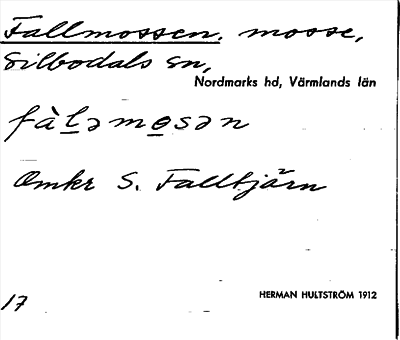 Fallmossen, mosse,
Silbodals sn,
Nordmarks hd, Värmlands län
fàləmosən
Omkr S. Falltjärn
17
HERMAN HULTSTRÖM 1912